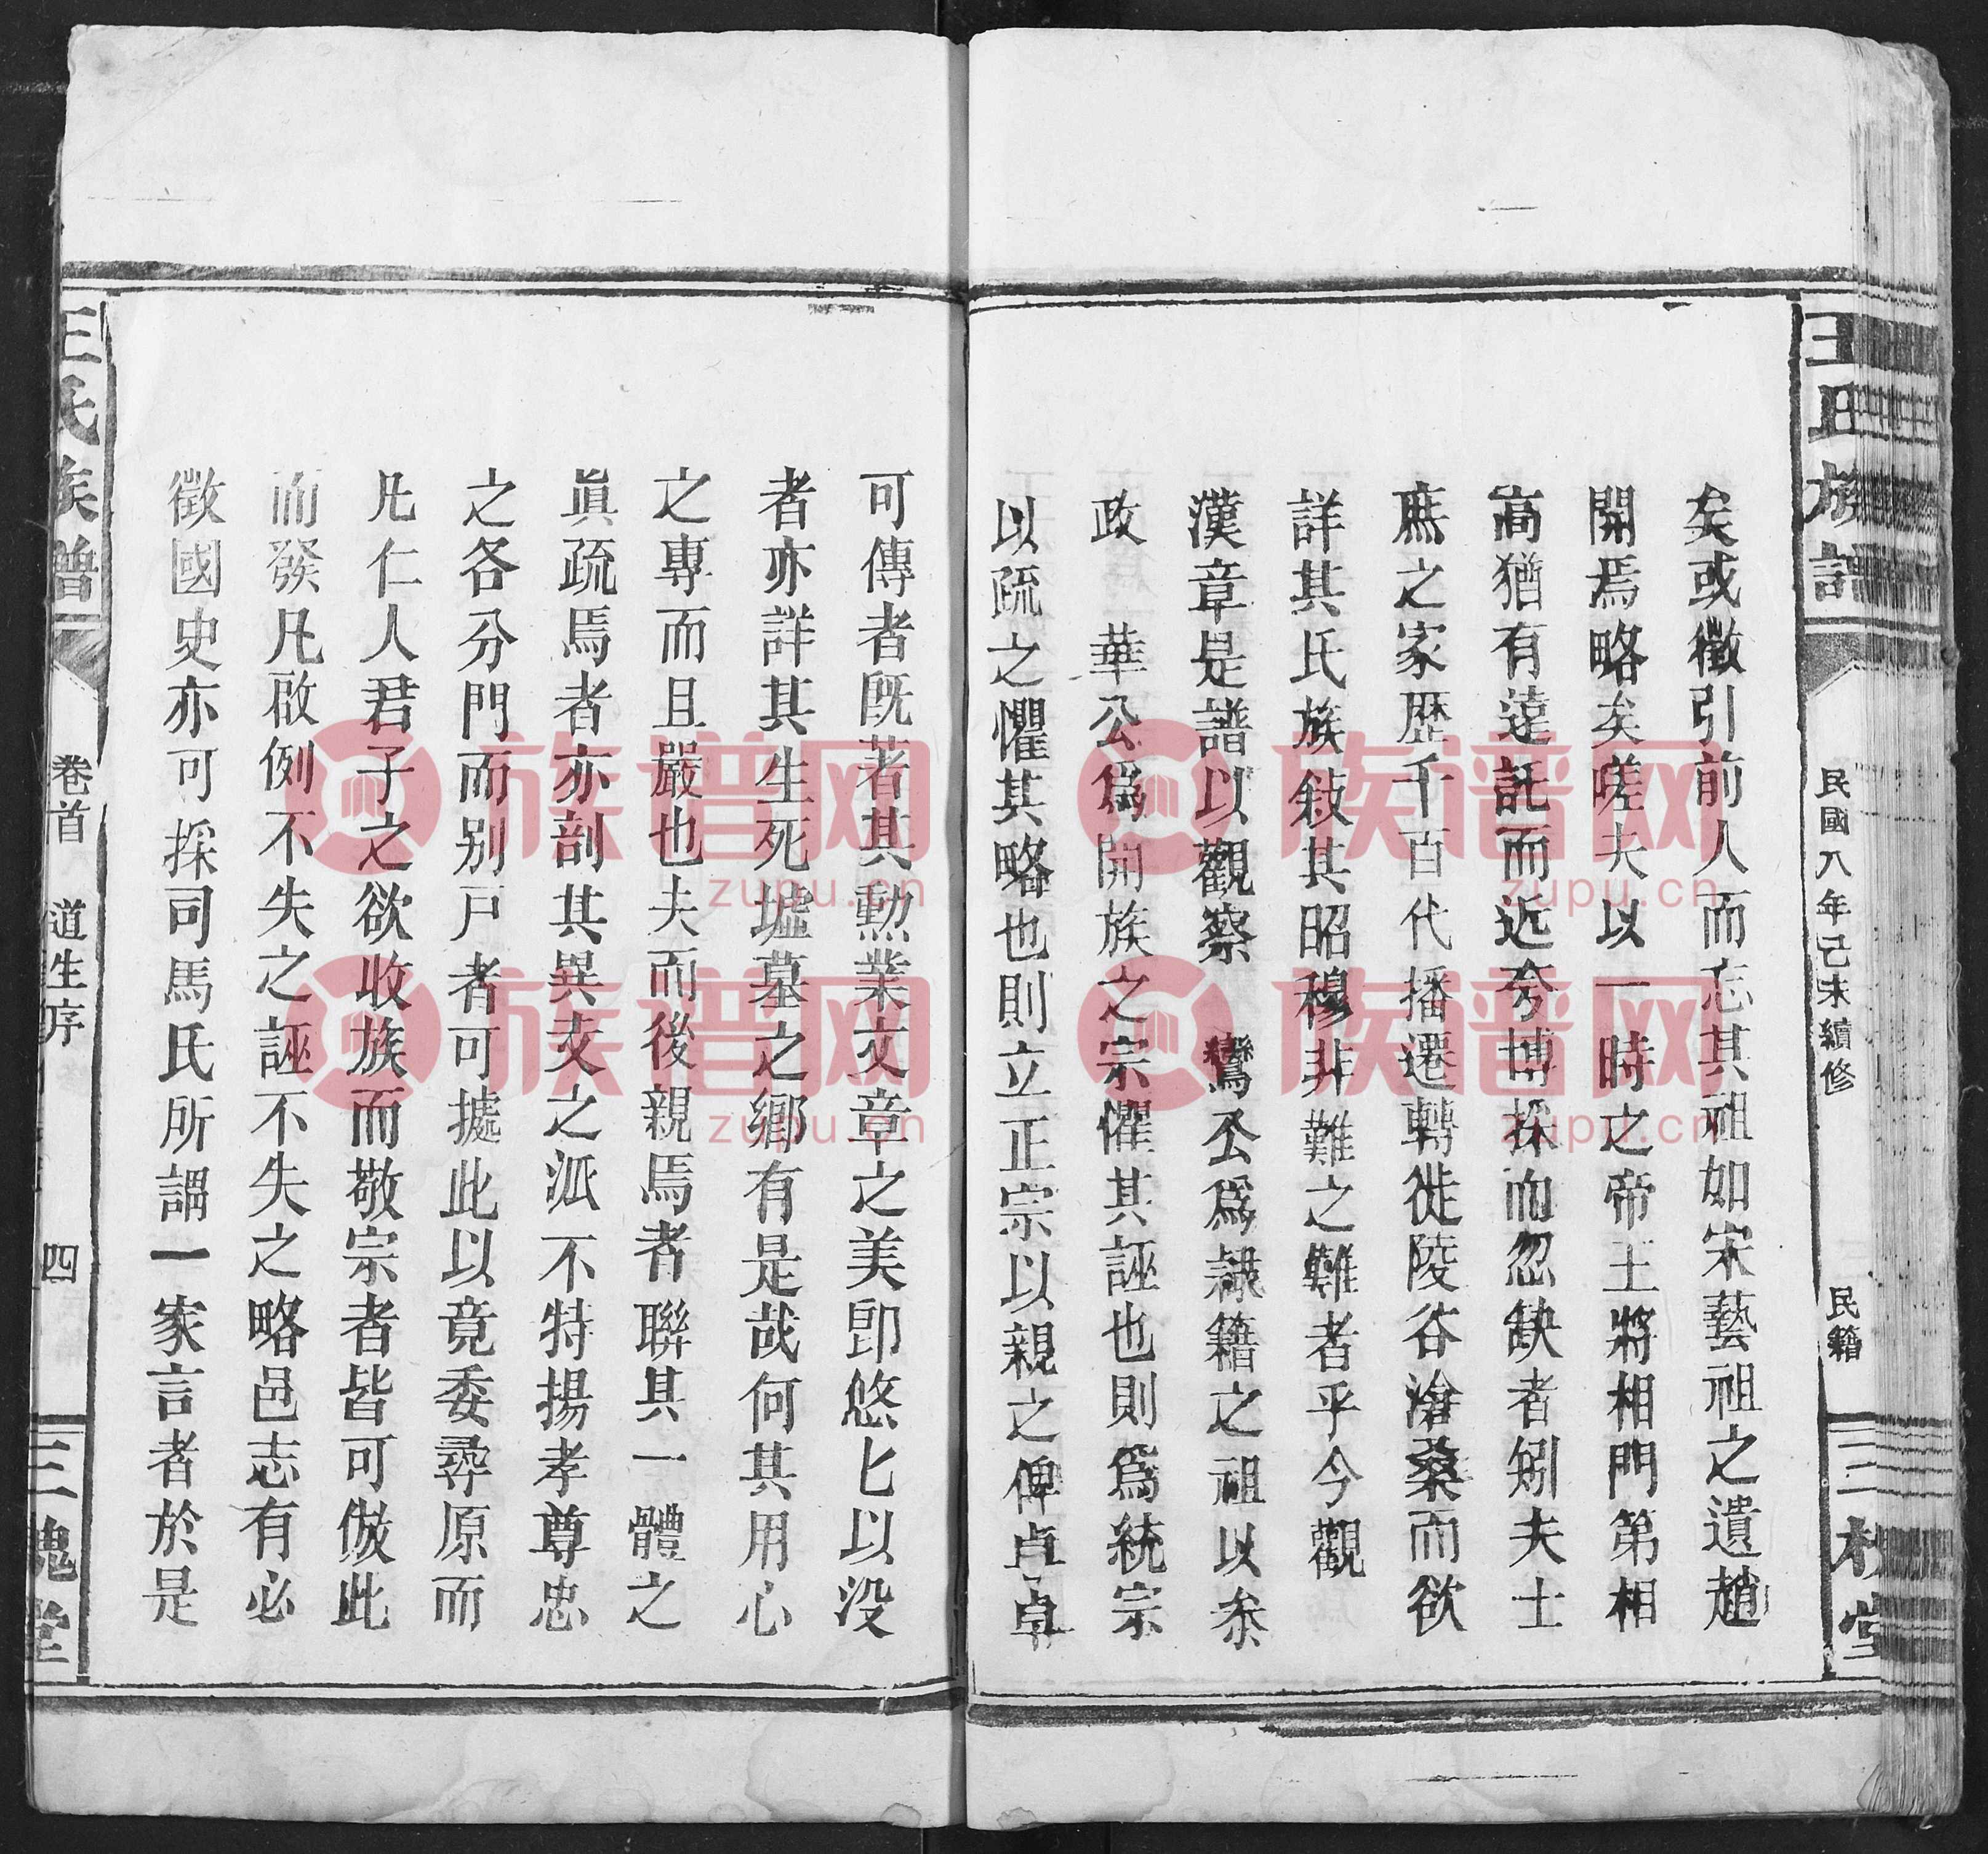 王氏族譜
民國八年己未續修
民籍
三槐堂
矣或徵引前人而忘其祖如宋藝祖之遺趙
開焉略矣嗟夫以一時之帝王將相門第相
高猶有遠託而近夸博採而忽缺者矧夫士
庶之家歷千百代播遷轉徙陵谷滄桑而欲
詳其氏族敍其昭穆非難之難者乎今觀
漢章是譜以觀察　鸞公爲隸籍之祖以叅
政　華公爲開族之宗懼其誣也則爲統宗
以疏之懼其略也則立正宗以親之俾卓卓
可傳者既著其勲業文章之美卽悠匕以没
者亦詳其生死墟墓之鄉有是哉何其用心
之專而且嚴也夫而後親焉者聯其一體之
眞疏焉者亦剖其異支之派不特揚孝尊忠
之各分門而别戸者可㨿此以竟委尋原而
凡仁人君子之欲收族而敬宗者皆可倣此
而發凡啟例不失之誣不失之略邑志有必
徵國史亦可採司馬氏所謂一家言者於是
王氏族譜
卷首
道生序
四
三槐堂
族谱网
zupu.cn
族谱网
zupu.cn
族谱网
zupu.cn
族谱网
zupu.cn